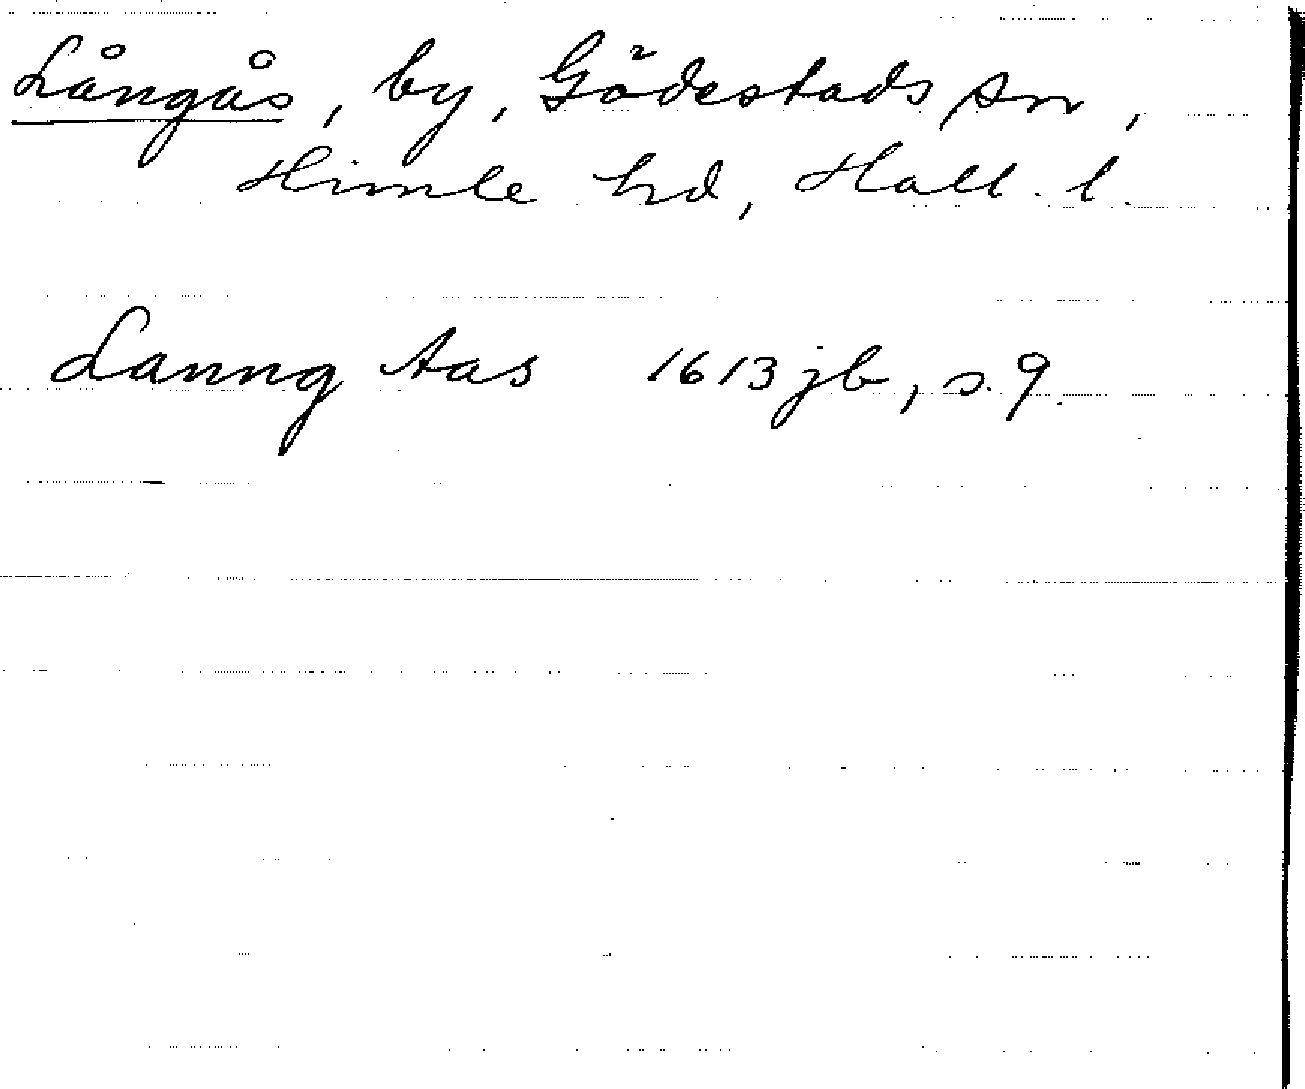 Långås, by, Gödestads sn,
Himle hd, Hall. l.
Lanng Aas 1613 jb, s. 9.